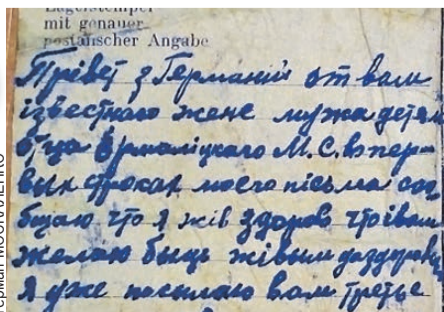 Lagerstempel
mit genauer
postalischer Angabe
Прівет з Германіи от вам
ізвестного жене мужа детям
отца Ермаліцкаго М.С. в пер-
вых строках моего пісьма соо
бщаю что я жів здоров что і вам
желаю быць жівым да здоровы
Я уже посылаю вам третье